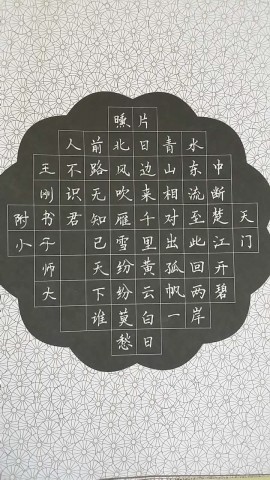 天门
中断楚江开碧
水东流至此回两岸
青山相对出孤帆一
片日边来千里黄云白日
曛北风吹雁雪纷纷莫愁
前路无知己天下谁
人不识君
王刚书于师大
附小